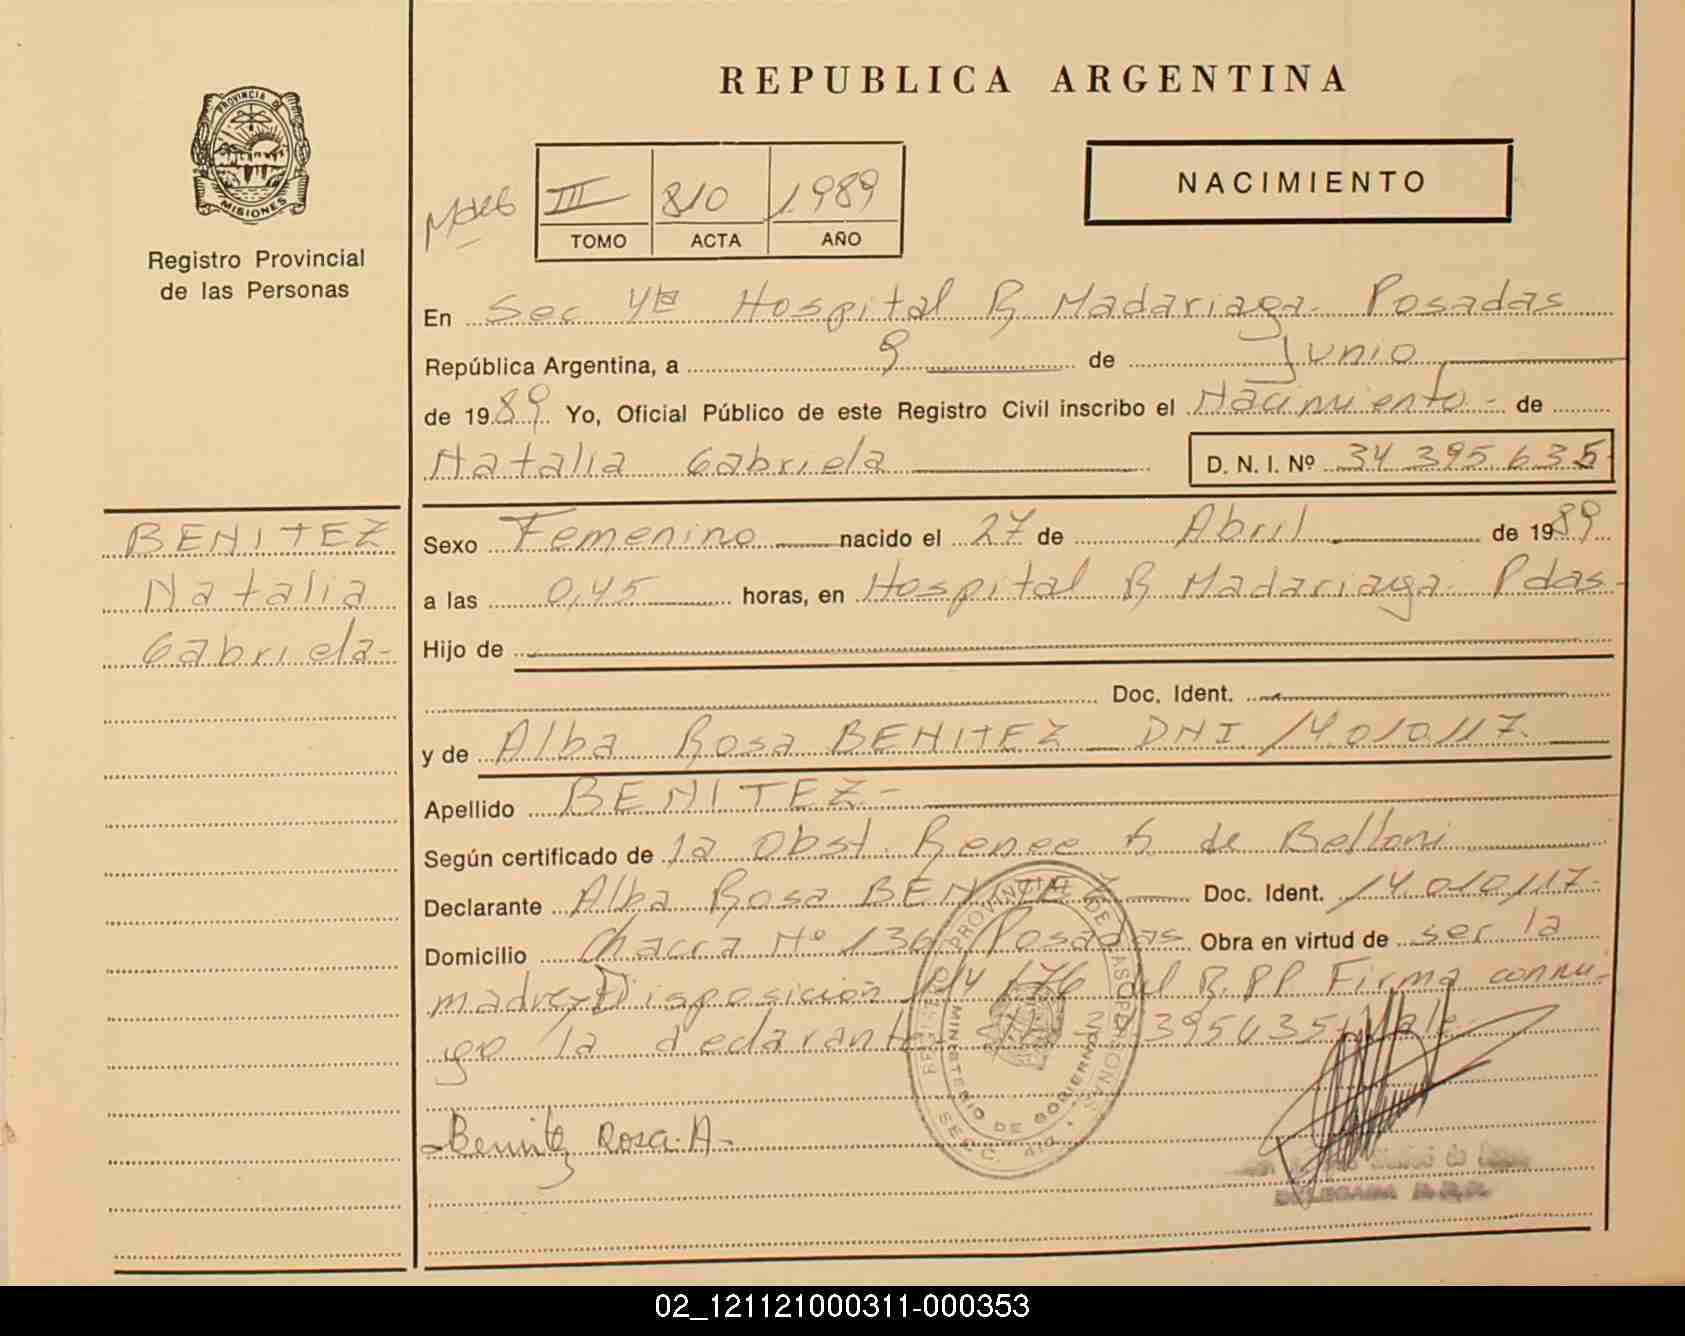 REPUBLICA ARGENTINA
PROVINCIA DE
MISIONES
Registro Provincial
de las Personas
NACIMIENTO
III 810 1989
TOMO ACTA AÑO
En Sec 4ta Hospital R Madariaga - Posadas
República Argentina, a 9 de Junio
de 1989 Yo, Oficial Público de este Registro Civil inscribo el Nacimiento - de
Natalia Gabriela D. N. I. Nº 34 395.635
BENITEZ
Natalia
Gabriela-
Sexo Femenino nacido el 27 de Abril de 1989
a las 0,45 horas, en Hospital R Madariaga - Pdas-
Hijo de
Doc. Ident.
y de Alba Rosa BENITEZ DNI 14.010.117.
Apellido BENITEZ-
Según certificado de la Obst. Renee de Belloni
Declarante Alba Rosa BENITEZ Doc. Ident. 14.010.117-
Domicilio Chacra Nº 136 Posadas Obra en virtud de ser la
madre Disposición 174/76 del R.P.P Firma conmi-
go la declarante 395635 Vale
-Benitez Rosa A-
REGISTRO PROVINCIAL DE LAS PERSONAS
MINISTERIO DE GOBIERNO
SECC. 4ta
DELEGADA R.P.P.
02_121121000311-000353